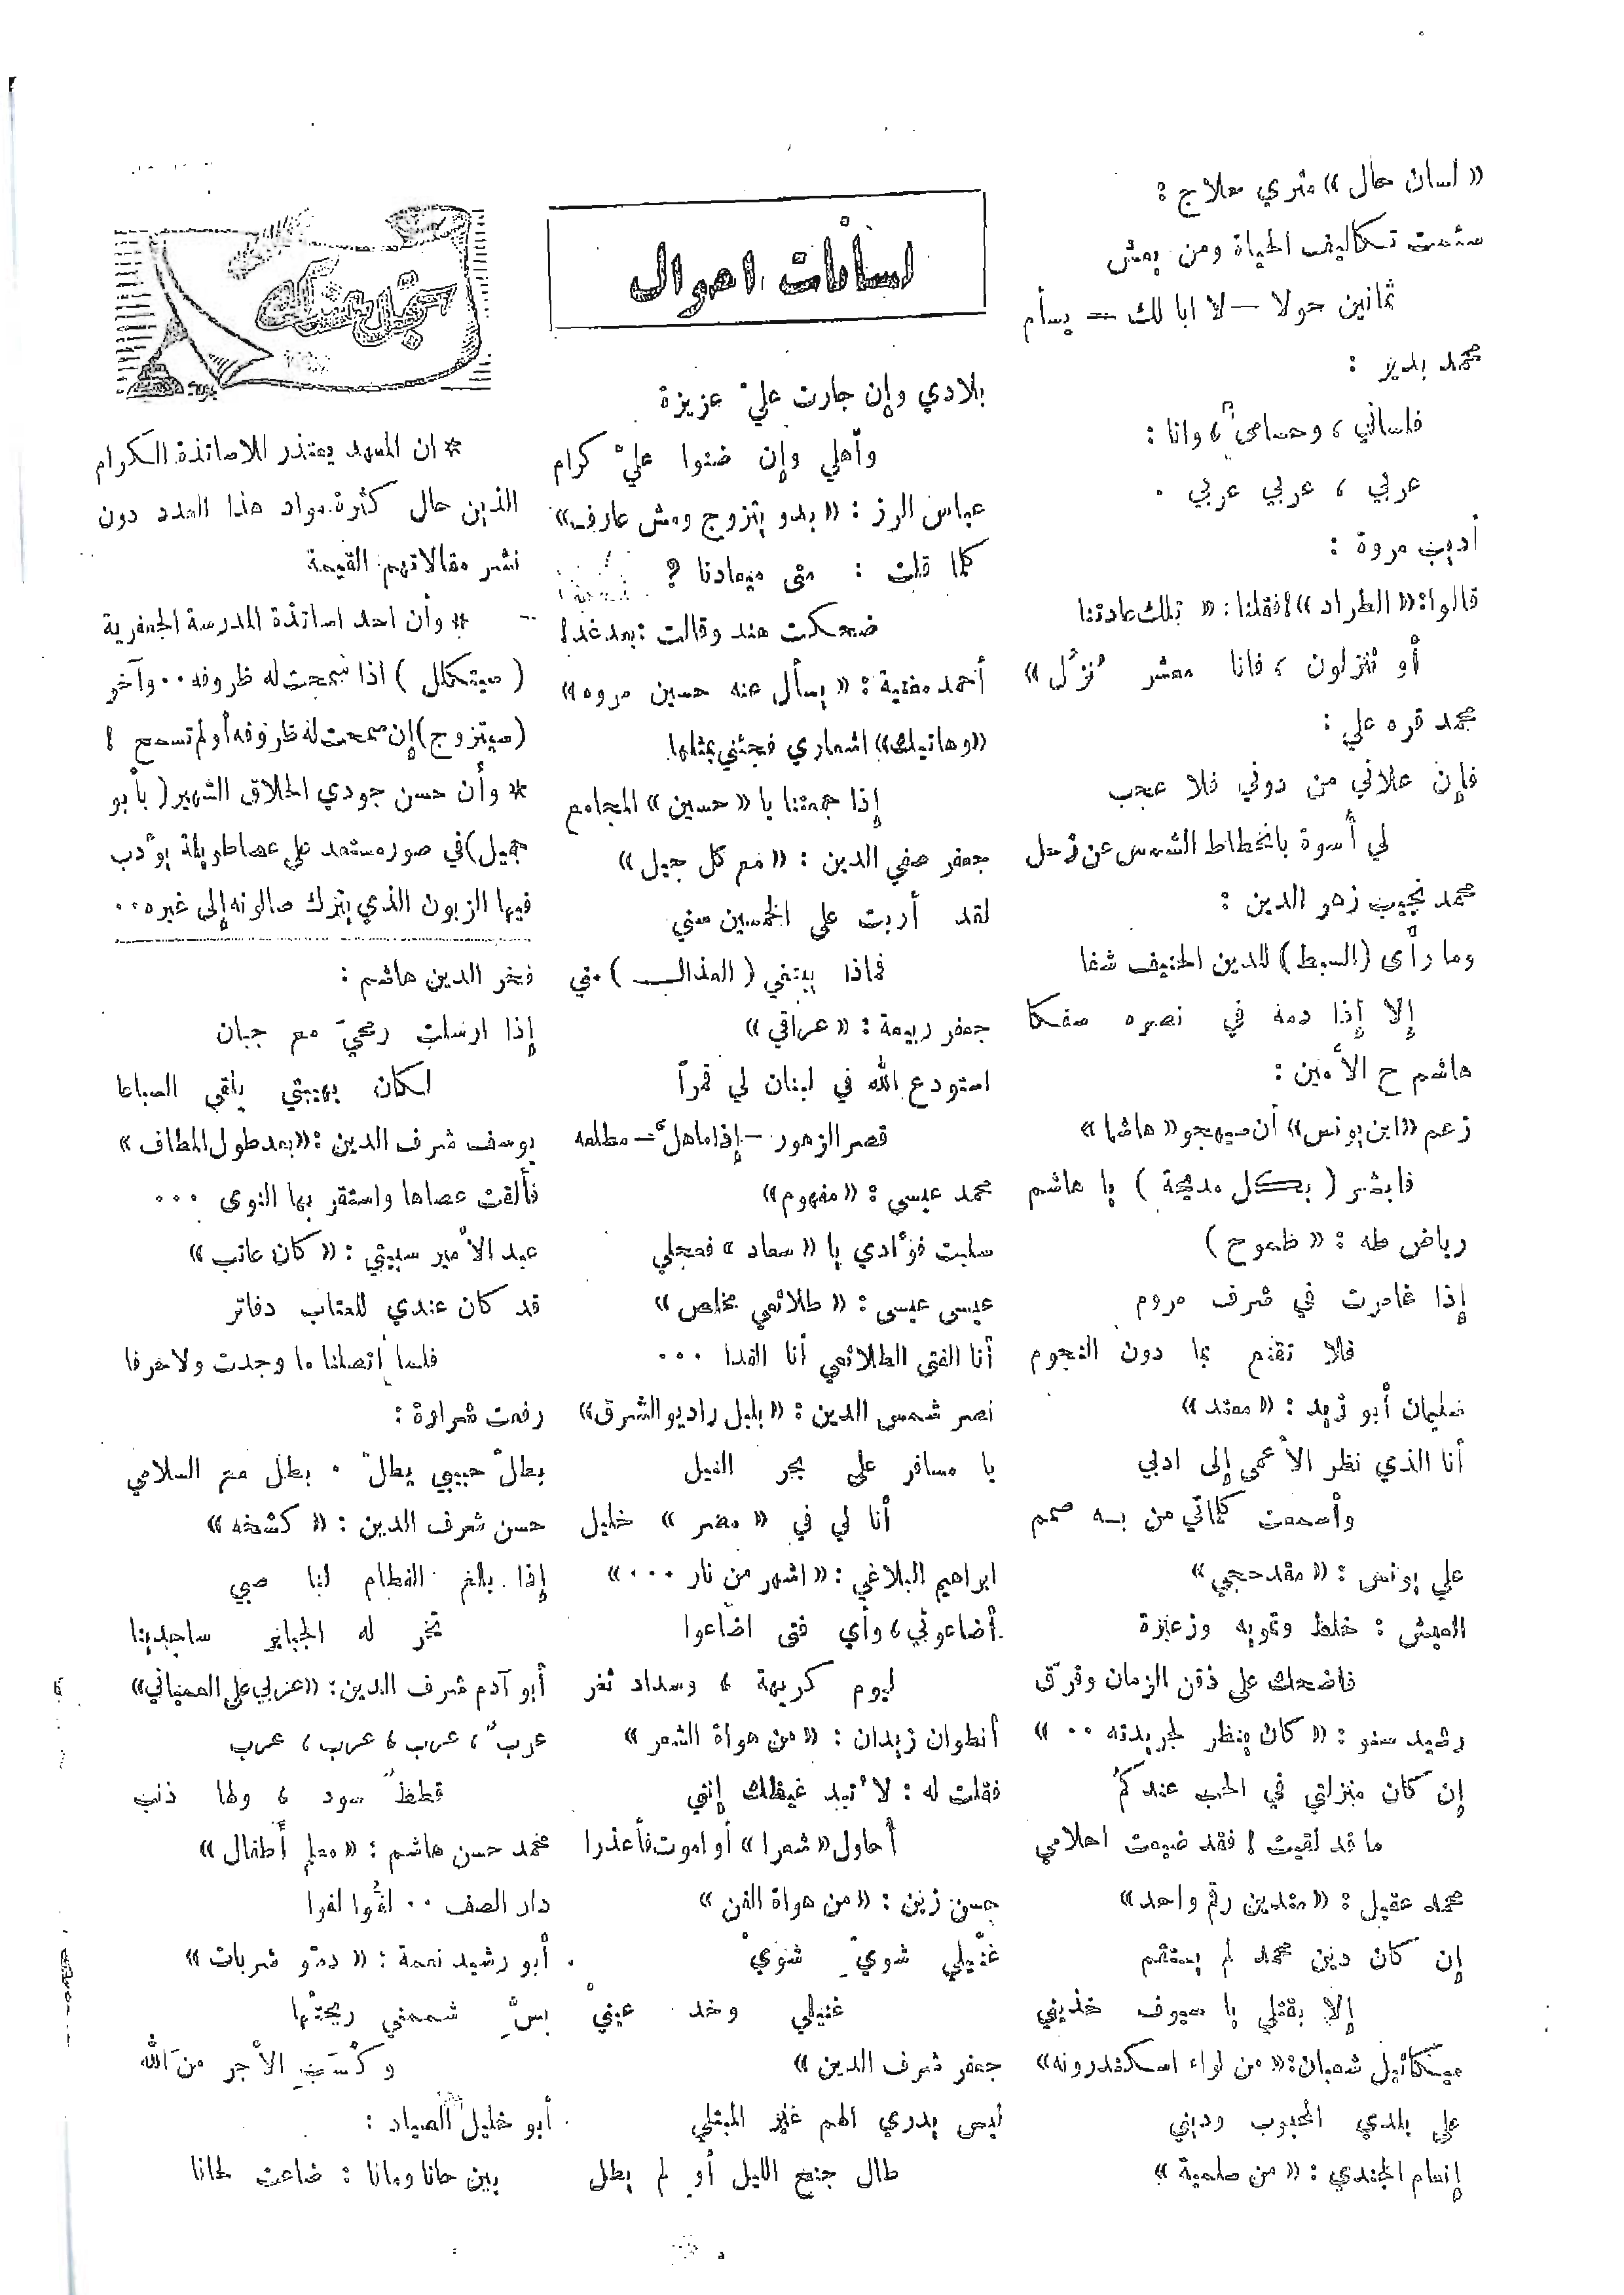 « لسان حال » متري معلاج :
سئمت تكاليف الحياة ومن يعش
ثمانين حولا – لا ابا لك – يسأم
محمد بديز :
فلساني ، وحسامي ، وانا :
عربي ، عربي عربي .
أديب مروة :
قالوا: « الطراد » ! فقلنا : « تلك عادتنا
أو تنزلون ، فانا معشر نُزُل »
محمد قره علي :
فإن علاني من دوني فلا عجب
لي أسوة بانحطاط الشمس عن زحل
محمد نجيب زهر الدين :
وما رأى (السبط) للدين الحنيف شفا
إلا إذا دمه في نصره سفكا
هاشم ح الأمين :
زعم «ابن يونس» أن سيهجو «هاشما»
فابشر ( بكل مديحة ) يا هاشم
رياض طه : « طموح )
إذا غامرت في شرف مروم
فلا تقنع بما دون النجوم
سليمان أبو زيد : « معتد »
أنا الذي نظر الأعمى إلى ادبي
وأسمعت كلماتي من به صمم
علي يونس : « مقدحجي »
العيش : خلط وتمويه وزعبرة
فاضحك على ذقن الزمان وفرّق
رشيد سنو : « كان ينظر لجريدته ٠٠ »
إن كان منزلتي في الحب عندكمُ
ما قد لقيت ! فقد ضيعت احلامي
محمد عقيل : « متدين رقم واحد »
إن كان دين محمد لم يستقم
إلا بقتلي يا سيوف خذيني
ميكائيل شعبان: « من لواء اسكندرونه »
على بلدي المحبوب وديني
إنعام الجندي : « من سلمية »
لسانات احوال
بلادي وإن جارت عليّ عزيزة
وأهلي وإن ضنوا عليّ كرام
عباس الرز : « بدو يتزوج ومش عارف »
كلما قلت : متى ميعادنا ?
ضحكت هند وقالت : بعد غد !
أحمد مغنية : « يسأل عنه حسين مروه »
«وهاتيك» اشعاري فجئني بمثلها
إذا جمعتنا يا « حسين » المجامع
جعفر صفي الدين : « مع كل جيل »
لقد أربت على الخمسين سني
فماذا يبتغي ( العذال ) مني
جعفر ربيعة : « عراقي »
استودع الله في لبنان لي قمراً
قصر الزهور – إذا ما هلّ – مطلعه
محمد عيسى : « مفهوم »
سلبت فؤادي يا « سعاد » فعجلي
عيسى عيسى : « طلائعي مخلص »
أنا الفتى الطلائعي أنا الفدا ٠٠٠
نصر شمس الدين : « بلبل راديو الشرق »
يا مسافر على بحر النيل
أنا لي في « مصر » خليل
ابراهيم البلاغي : « اشهر من نار ٠٠٠ »
أضاعوني ، وأي فتى اضاعوا
ليوم كريهة ، وسداد ثغر
أنطوان زيدان : « من هواة الشعر »
فقلت له : لا تبد غيظك إنني
أحاول « شعرا » أو اموت فأعذرا
حسن زين : « من هواة الفن »
غنّيلي شويّ شويّ
غنيلي وخد عينيّ
جعفر شرف الدين »
ليس يدري الهم غير المبتلي
طال جنح الليل أو لم يطل
سجّل عندك
* ان المعهد يعتذر للاساتذة الكرام
الذين حال كثرة مواد هذا العدد دون
نشر مقالاتهم القيمة
* وأن احد اساتذة المدرسة الجعفرية
( سيتكلل ) اذا سمحت له ظروفه ٠٠ وآخر
(سيتزوج) إن سمحت له ظروفه أو لم تسمح !
* وأن حسن جودي الحلاق الشهير ( بأبو
جميل) في صور مستعد على عصا طويلة يؤدب
فيها الزبون الذي يترك صالونه إلى غيره ٠٠
فخر الدين هاشم :
إذا ارسلت رمحي مع جبان
لكان بهيبتي يلقى السباعا
يوسف شرف الدين : « بعد طول المطاف »
فألقت عصاها واستقر بها النوى ٠٠٠
عبد الأمير سبيتي : « كان عاتب »
قد كان عندي للعتاب دفاتر
فلما اتصلنا ما وجدت ولا حرفا
رفعت شرارة :
بطلّ حبيبي يطلّ . بطل مع السلامي
حسن شرف الدين : « كشخه »
إذا بلغ الفطام لنا صبي
تخر له الجبابر ساجدينا
أبو آدم شرف الدين : « عربي على العمياني »
عربٌ ، عرب ، عرب ، عرب
قططٌ سود ، ولها ذنب
محمد حسن هاشم : « معلم أطفال »
دار الصف ٠٠ لفُّوا لفوا
أبو رشيد نعمة : « دمّو شربات »
بسّ شممني ريحتها
وكْسَبِ الأجر من الله
أبو خليل الصياد :
بين حانا ومانا : ضاعت لحانا